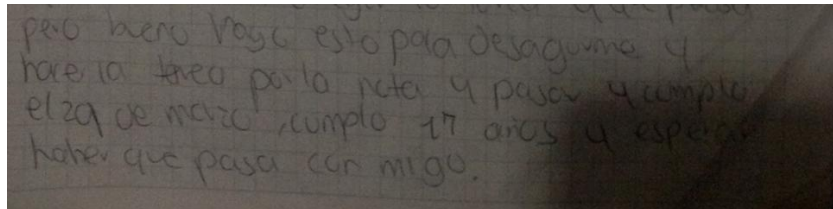 pero bueno hago esto para desaogarme y
hace la tarea por la nota y pasar y cumplo
el 29 de marzo, cumplo 17 años y esperar
haber que pasa con migo.